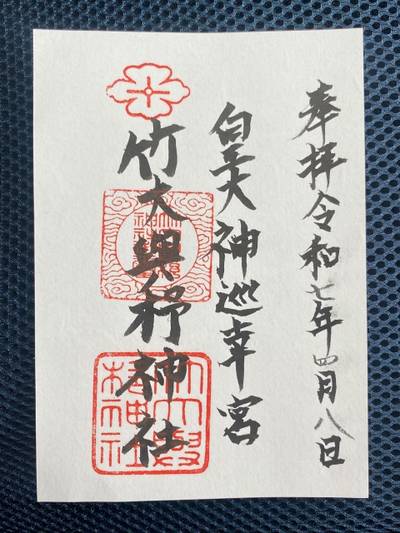 奉拝令和七年四月八日
皇大神巡幸宮
竹大與杼神社
竹大與
杼神社